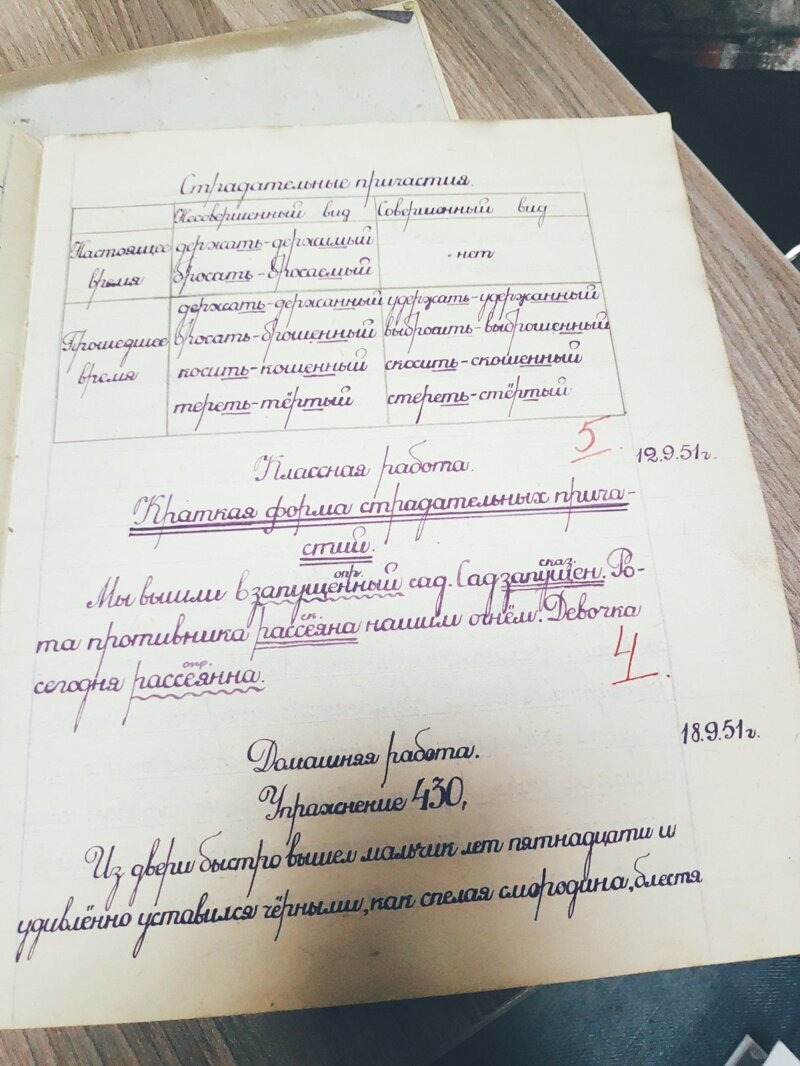 Страдательные причастия.
Несовершенный вид Совершенный вид
Настоящее держать-держимый
время бросать-бросаемый нет
держать-держанный удержать-удержанный
Прошедшее бросать-брошенный выбросить-выброшенный
время косить-кошенный скосить-скошенный
тереть-тёртый стереть-стёртый
5
12.9.51г.
Классная работа.
Краткая форма страдательных прича-
стий.
опр. сказ.
Мы вышли в запущенный сад. Сад запущен. Ро-
ск.
та противника рассеяна нашим огнём. Девочка
опр.
сегодня рассеянна.
4
18.9.51г.
Домашняя работа.
Упражнение 430,
Из двери быстро вышел мальчик лет пятнадцати и
удивлённо уставился чёрными, как спелая смородина, блестя